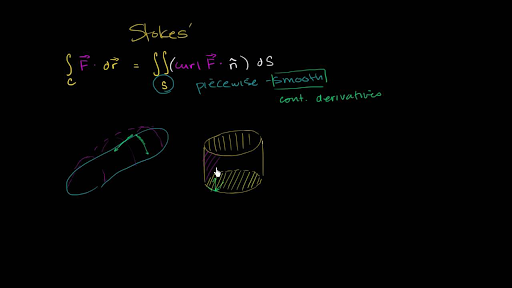 Stokes'
∫_C F⃗ · dr⃗ = ∬_S (curl F⃗ · n̂) dS
piecewise - smooth
cont. derivatives